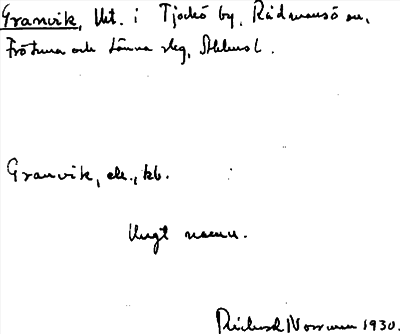 Granvik, Ut. i Tjockö by, Rådmansö sn,
Frötuna och Länna skg, Sthlms l.
Granvik, ek., kb.
Ungt namn.
Norrman 1930.